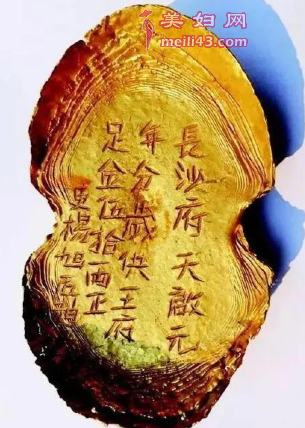 美妇网
meili43.com
長沙府天啟元
年分歲供王府
足金伍拾兩正
吏楊旭